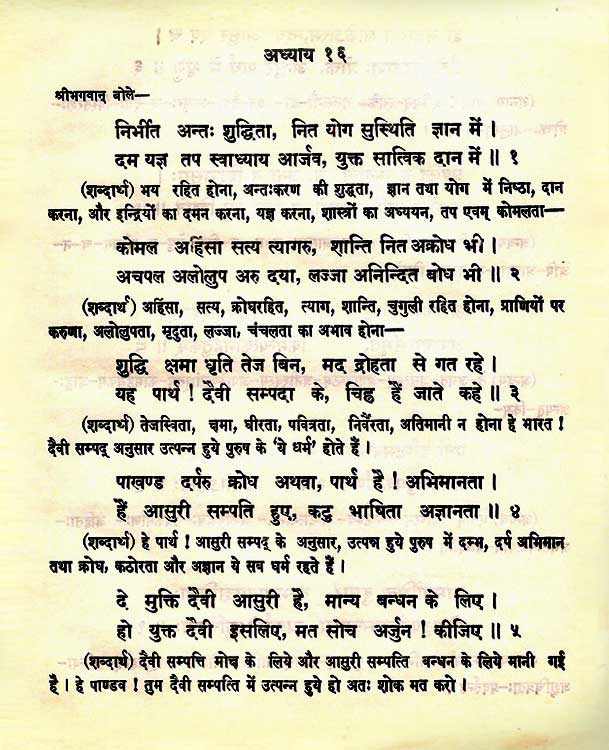 अध्याय १६
श्रीभगवान् बोले—
निर्भीत अन्तः शुद्धिता, नित योग सुस्थिति ज्ञान में ।
दम यज्ञ तप स्वाध्याय आर्जव, युक्त सात्विक दान में ॥ १
(शब्दार्थ) भय रहित होना, अन्तःकरण की शुद्धता, ज्ञान तथा योग में निष्ठा, दान
करना, और इन्द्रियों का दमन करना, यज्ञ करना, शास्त्रों का अध्ययन, तप एवम् कोमलता—
कोमल अहिंसा सत्य त्यागरु, शान्ति नित अक्रोध भी ।
अचपल अलोलुप अरु दया, लज्जा अनिन्दित बोध भी ॥ २
(शब्दार्थ) अहिंसा, सत्य, क्रोधरहित, त्याग, शान्ति, चुगुली रहित होना, प्राणियों पर
करुणा, अलोलुपता, मृदुता, लज्जा, चंचलता का अभाव होना—
शुद्धि क्षमा धृति तेज बिन, मद द्रोहता से गत रहे ।
यह पार्थ ! दैवी सम्पदा के, चिह्न हैं जाते कहे ॥ ३
(शब्दार्थ) तेजस्विता, क्षमा, धीरता, पवित्रता, निर्वैरता, अतिमानी न होना हे भारत !
दैवी सम्पद् अनुसार उत्पन्न हुये पुरुष के ‘ये धर्म’ होते हैं ।
पाखण्ड दर्परु क्रोध अथवा, पार्थ है ! अभिमानता ।
हैं आसुरी सम्पति हुए, कटु भाषिता अज्ञानता ॥ ४
(शब्दार्थ) हे पार्थ ! आसुरी सम्पद् के अनुसार, उत्पन्न हुये पुरुष में दम्भ, दर्प अभिमान
तथा क्रोध, कठोरता और अज्ञान ये सब धर्म रहते हैं ।
दे मुक्ति दैवी आसुरी है, मान्य बन्धन के लिए ।
हो युक्त दैवी इसलिए, मत सोच अर्जुन ! कीजिए ॥ ५
(शब्दार्थ) दैवी सम्पत्ति मोक्ष के लिये और आसुरी सम्पत्ति बन्धन के लिये मानी गई
है । हे पाण्डव ! तुम दैवी सम्पत्ति में उत्पन्न हुये हो अतः शोक मत करो ।